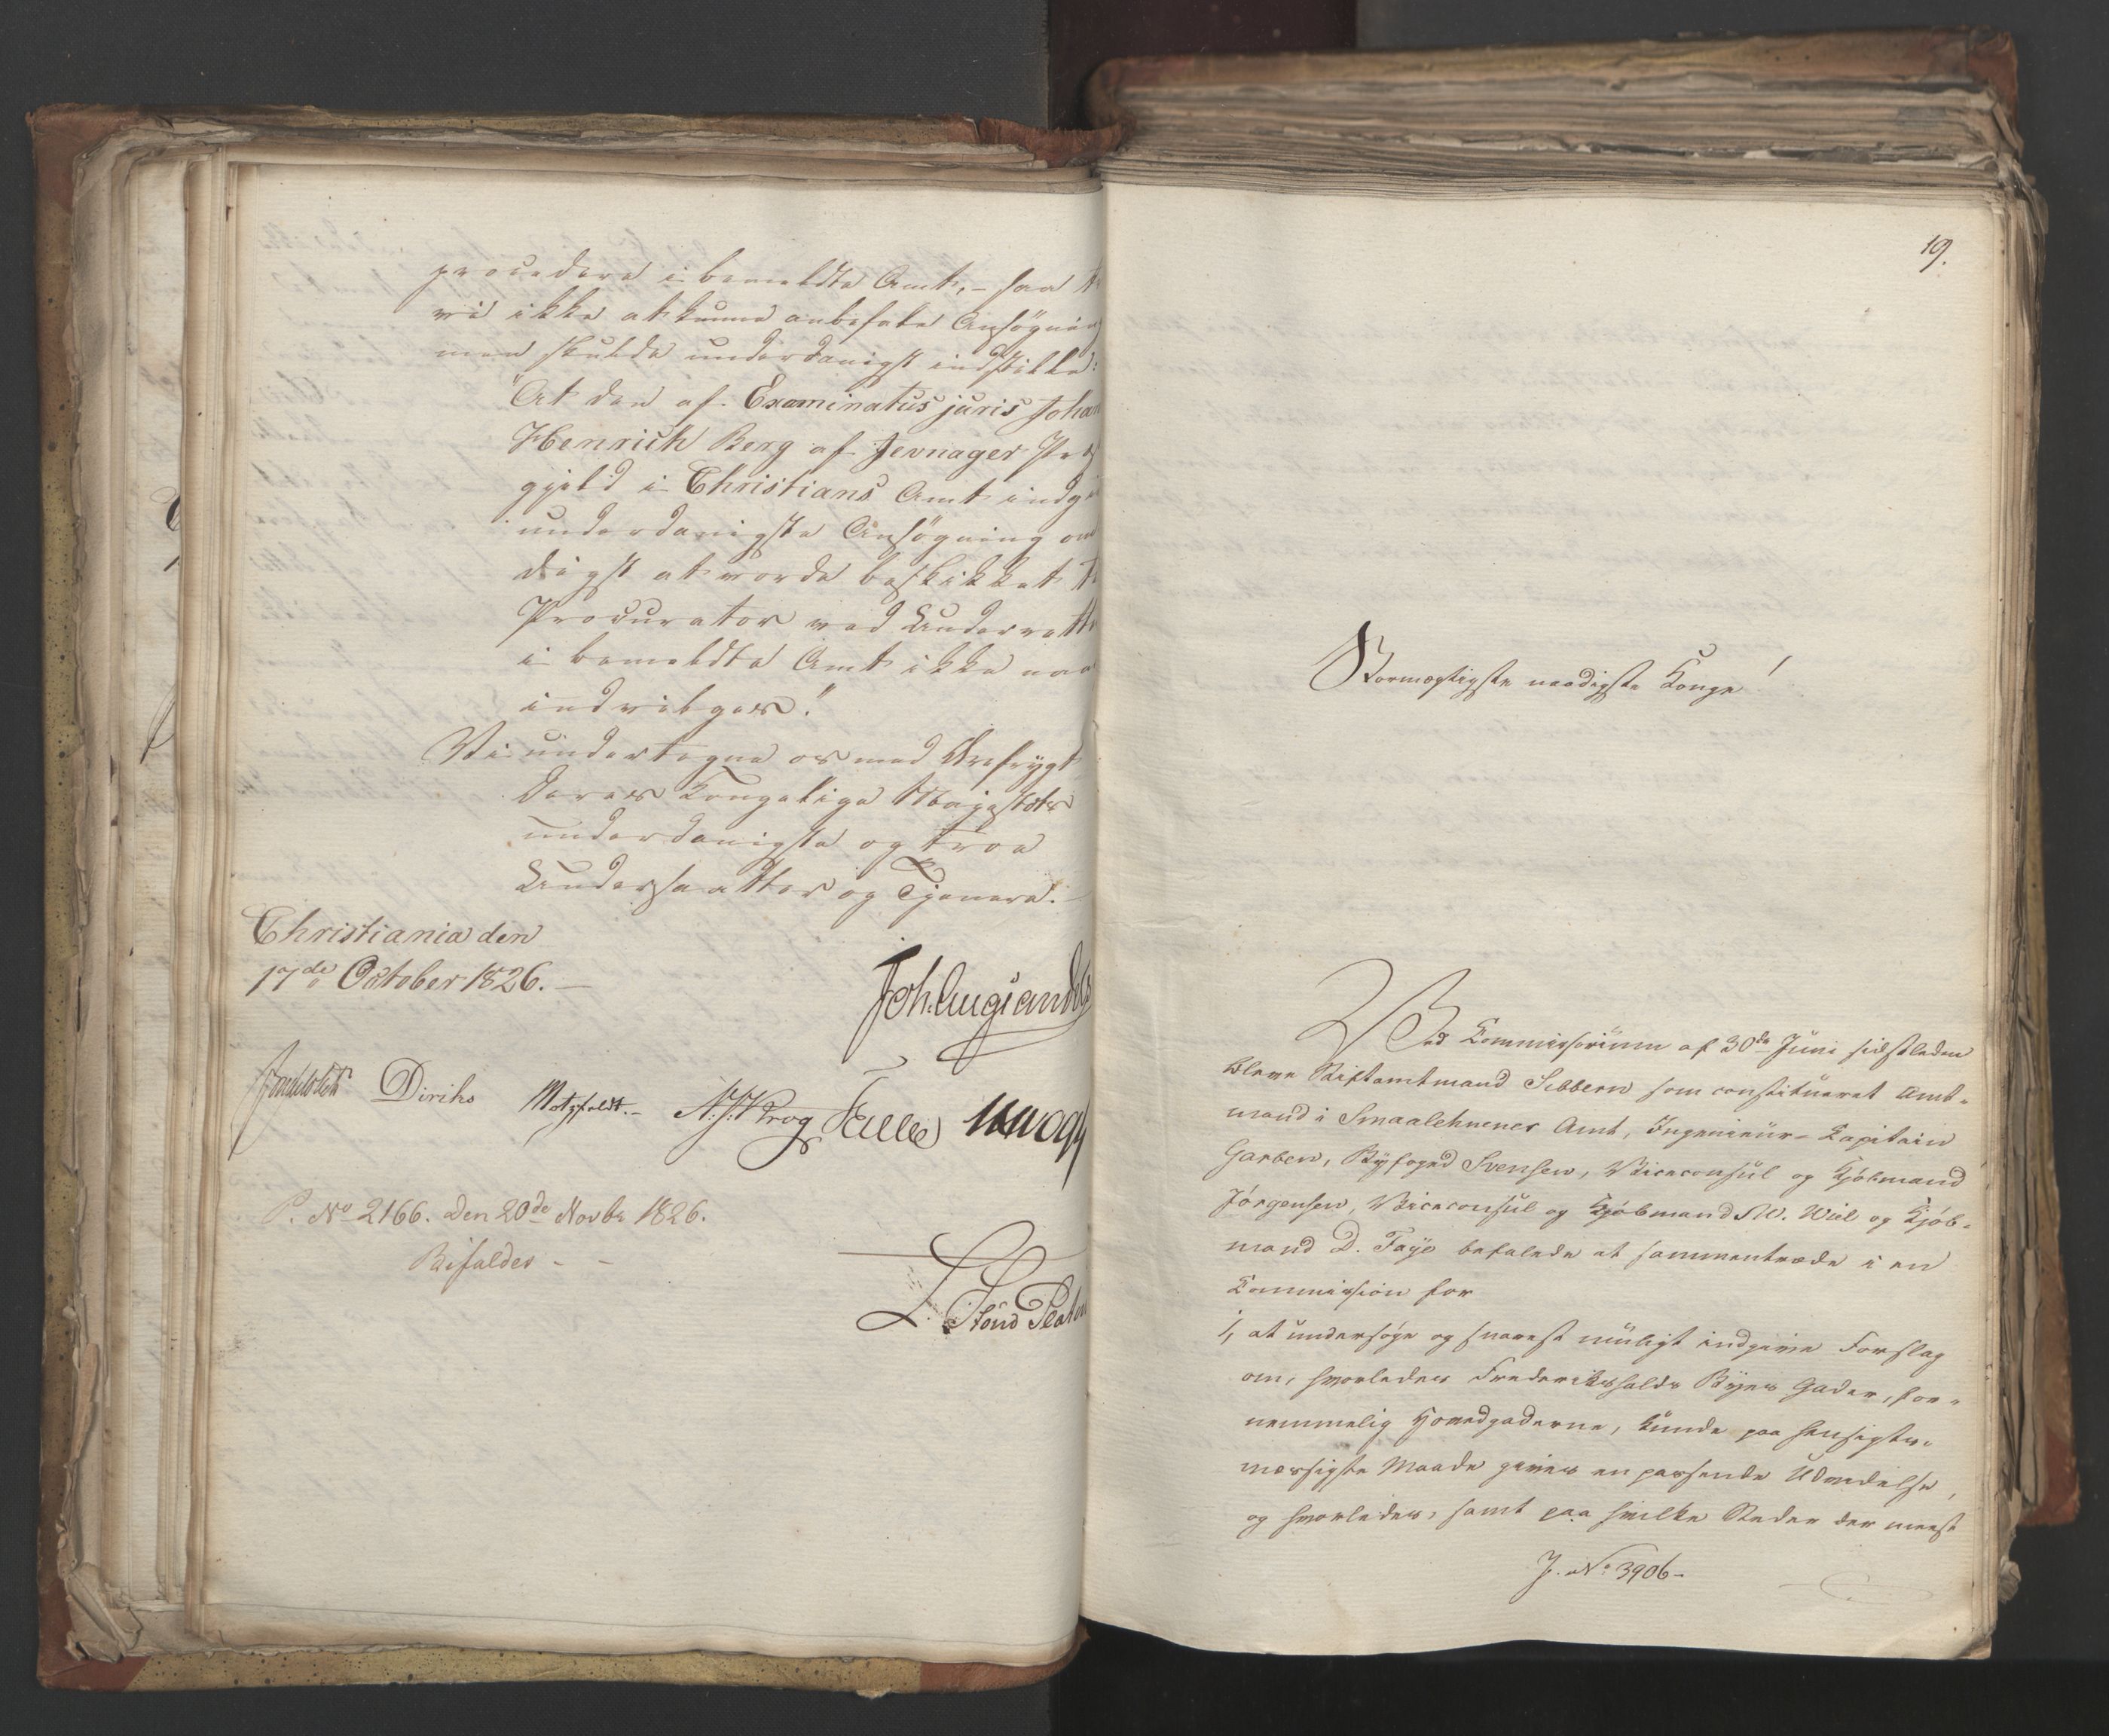 procedere i bemeldte Amt, – saa t
vi ikke at kunne anbefale Ansögning
men skulde underdanigst indstille:
"At den af Examinatus juris Johan
Henrich Berg af Jevnager Præs
gjeld i Christians Amt indgi
underdanigste Ansögning om
digst at vorde beskikket t
Procurator ved Underrette
i bemeldte Amt ikke naa
indvilges."
Vi undertegne os med Ærefrygt
Deres Kongelige Majestæts
underdanigste og troe
Undersaatter og Tjenere. –
Christiania den
17de October 1826. –
Joh. Aug. Sandels
Diriks Motzfeldt. – N: J: Krog
P. No 2166. den 20de Novbr 1826.
Bifaldes – –
19.
Stormægtigste naadigste Konge!
Ved Kommissorium af 30de Juni sidstleden
bleve Stiftamtmand Sibbern som constitueret Amt-
mand i Smaalehnenes Amt, Ingenieur-Kapitain
Garben, Byfoged Svensen, Viceconsul og Kjöbmand
Jörgensen, Viceconsul og Kjöbmand M. Wiel og Kjöb-
mand D. Faye befalede at sammentræde i en
Kommission for
1, at undersöge og snarest muligt indgive Forslag
om, hvorledes Frederikshalds Byes Gader, for-
nemmelig Hovedgaderne, kunde paa hensigts-
mæssigste Maade gives en passende Udvidelse,
og hvorledes, samt paa hvilke Steder der meest
J. No 3906 –